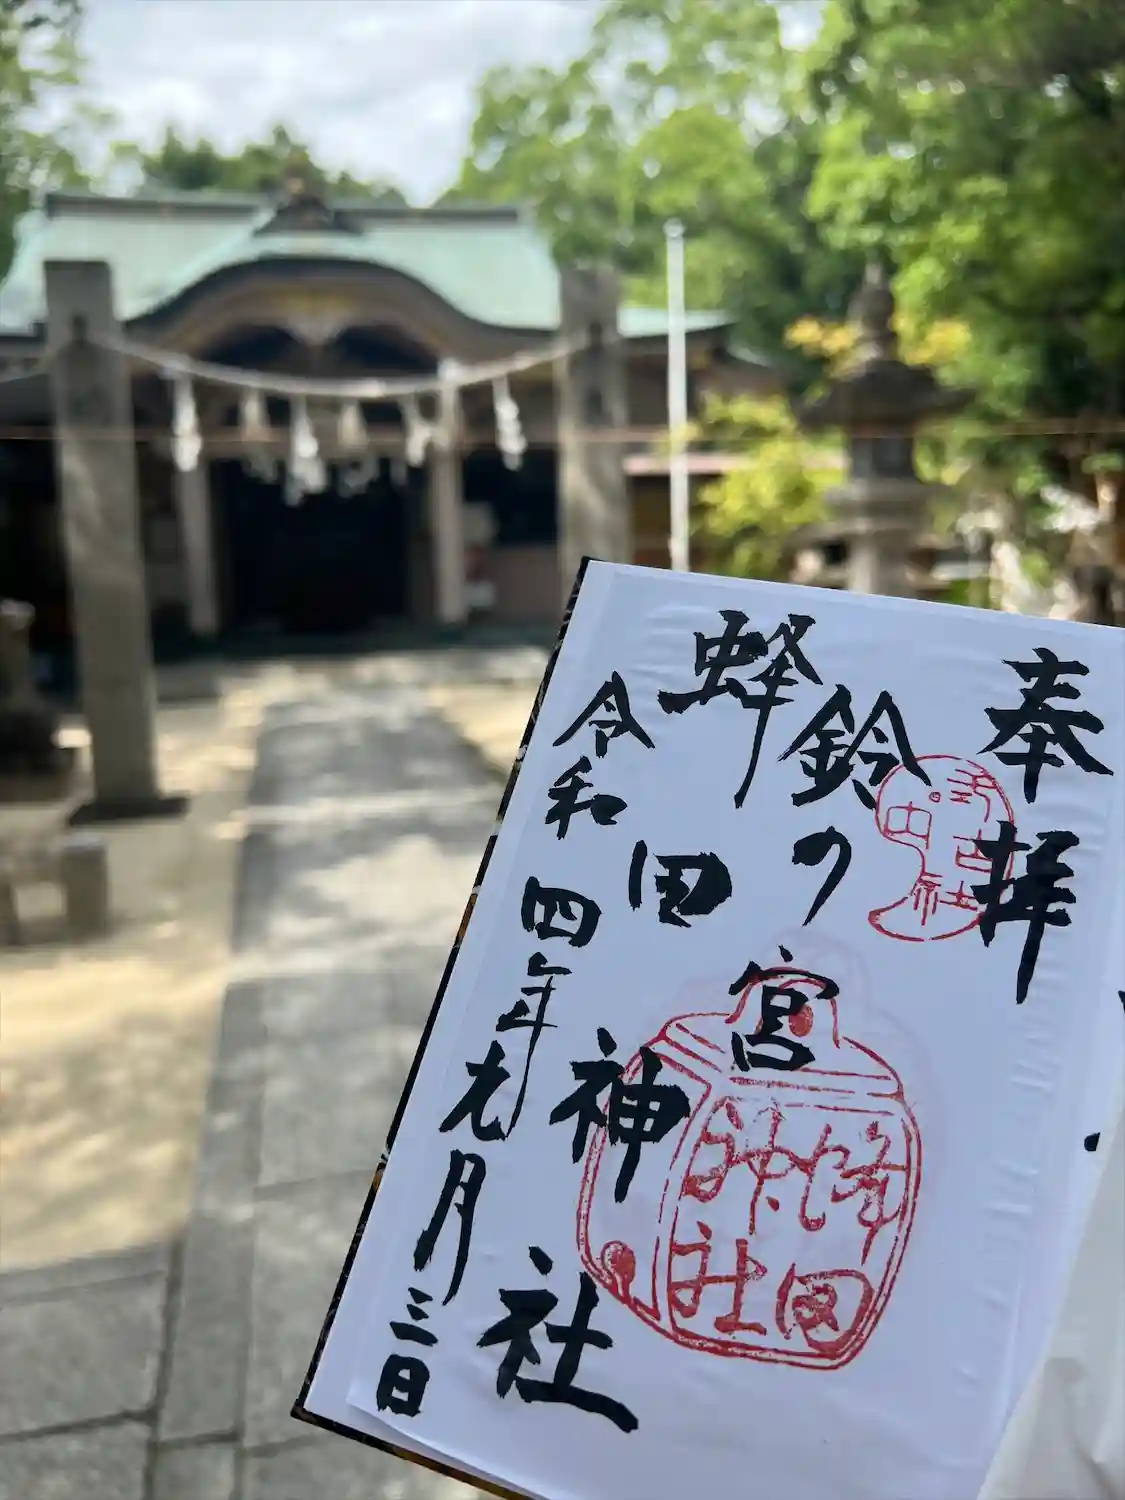 奉拝
鈴の宮
蜂田神社
令和四年九月三日
蜂田
神社